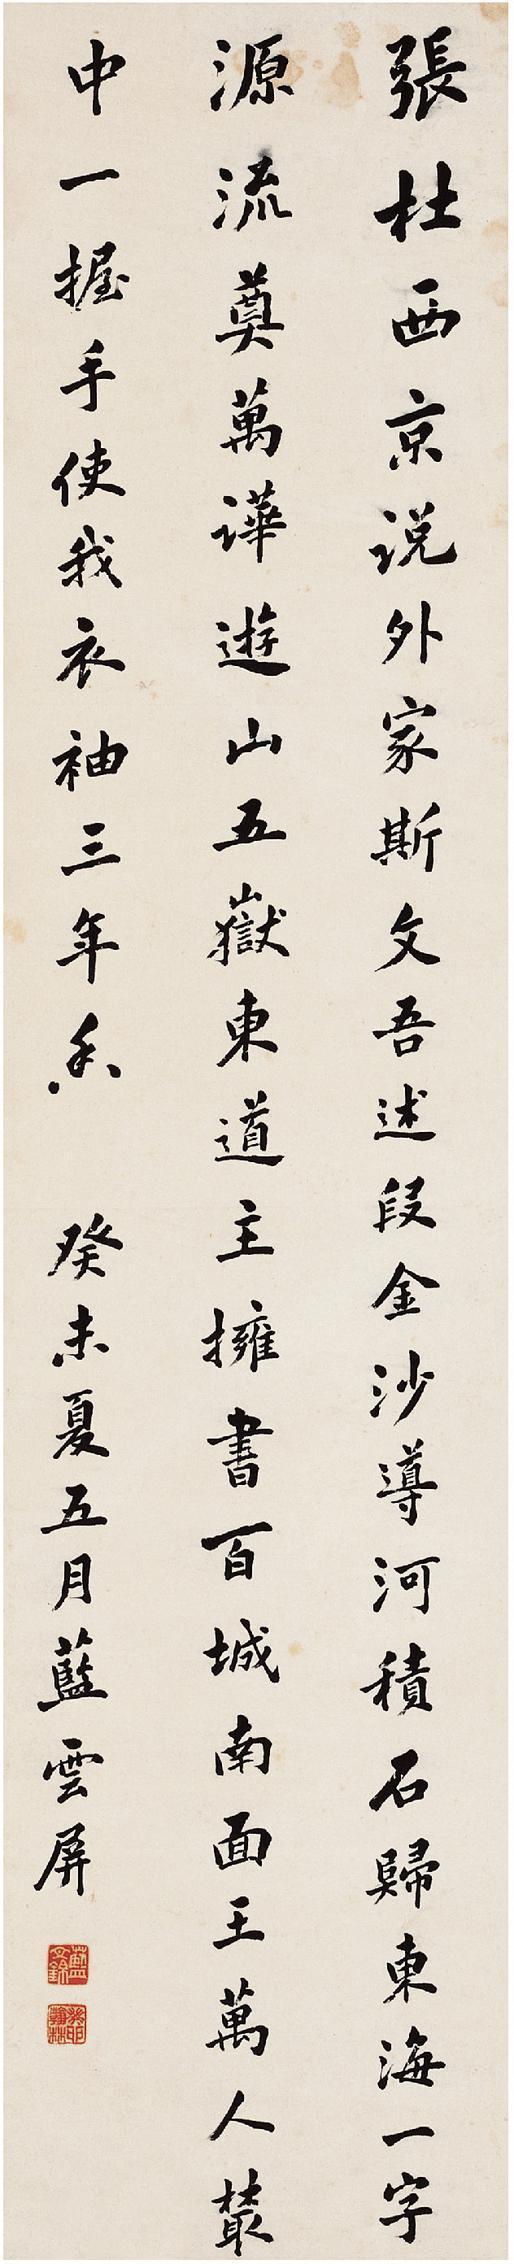 張杜西京说外家斯文吾述段金沙導河積石歸東海一字
源流奠萬譁遊山五嶽東道主擁書百城南面王萬人叢
中一握手使我衣袖三年香　癸未夏五月藍雲屏
藍文錦
癸卯翰林